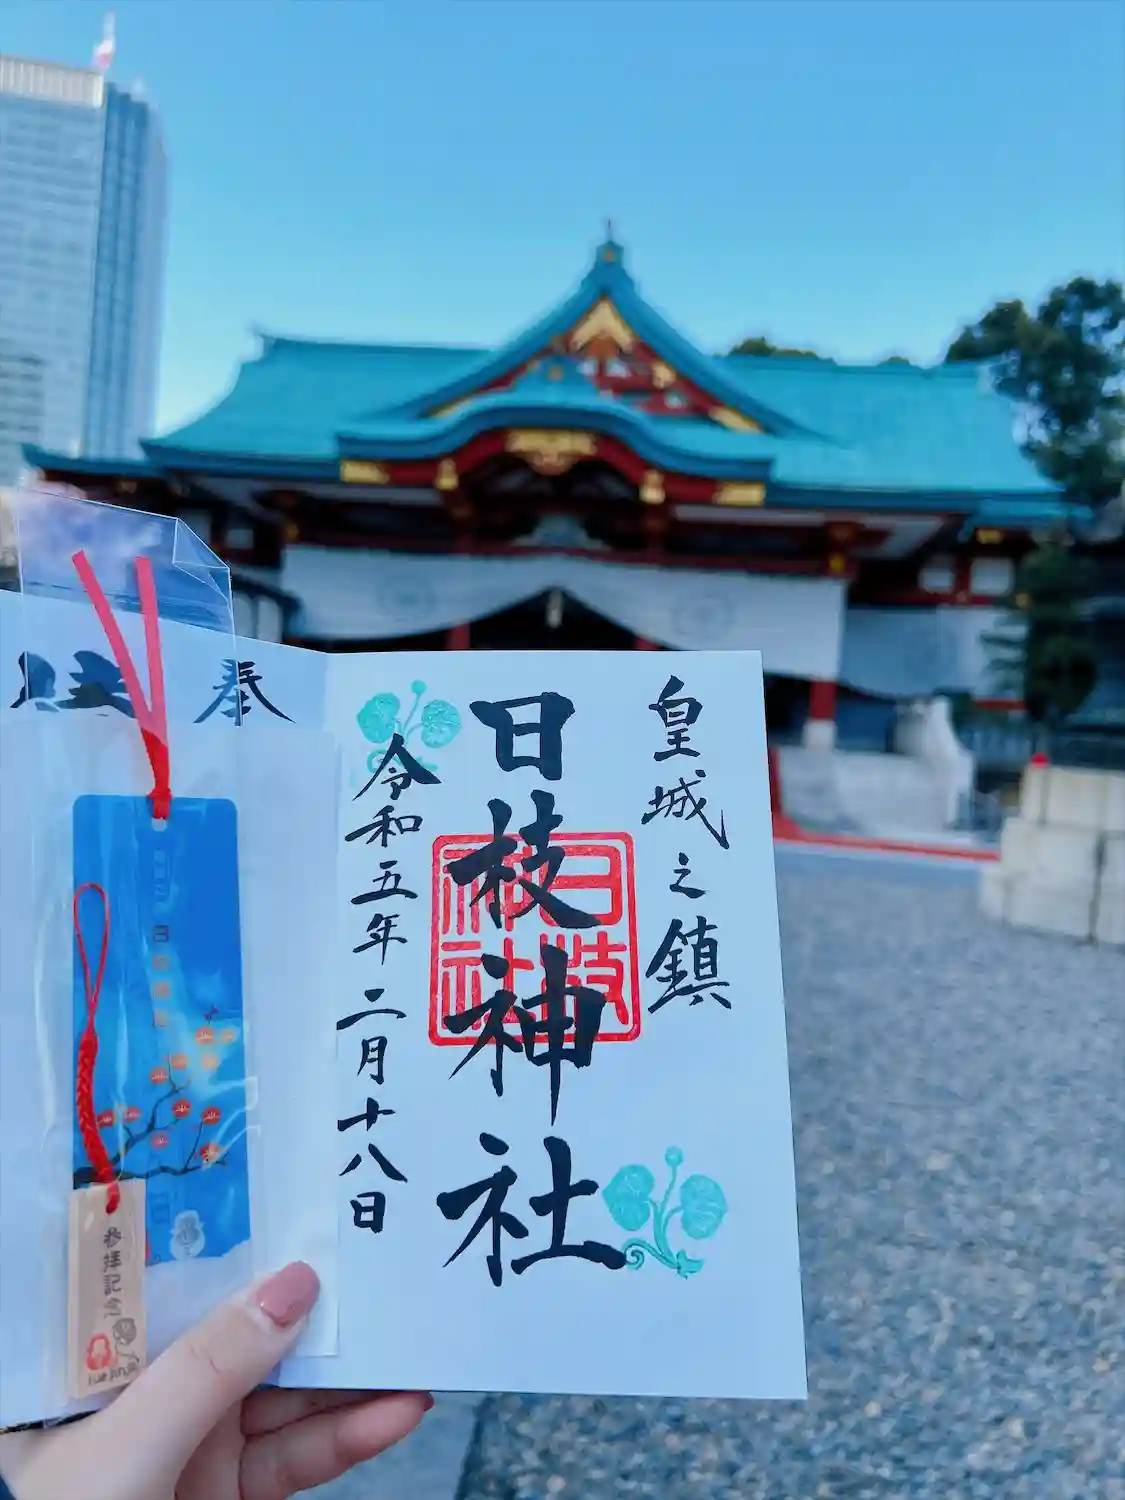 皇城之鎮
日枝神社
日枝
神社
令和五年二月十八日
奉
参拝記念